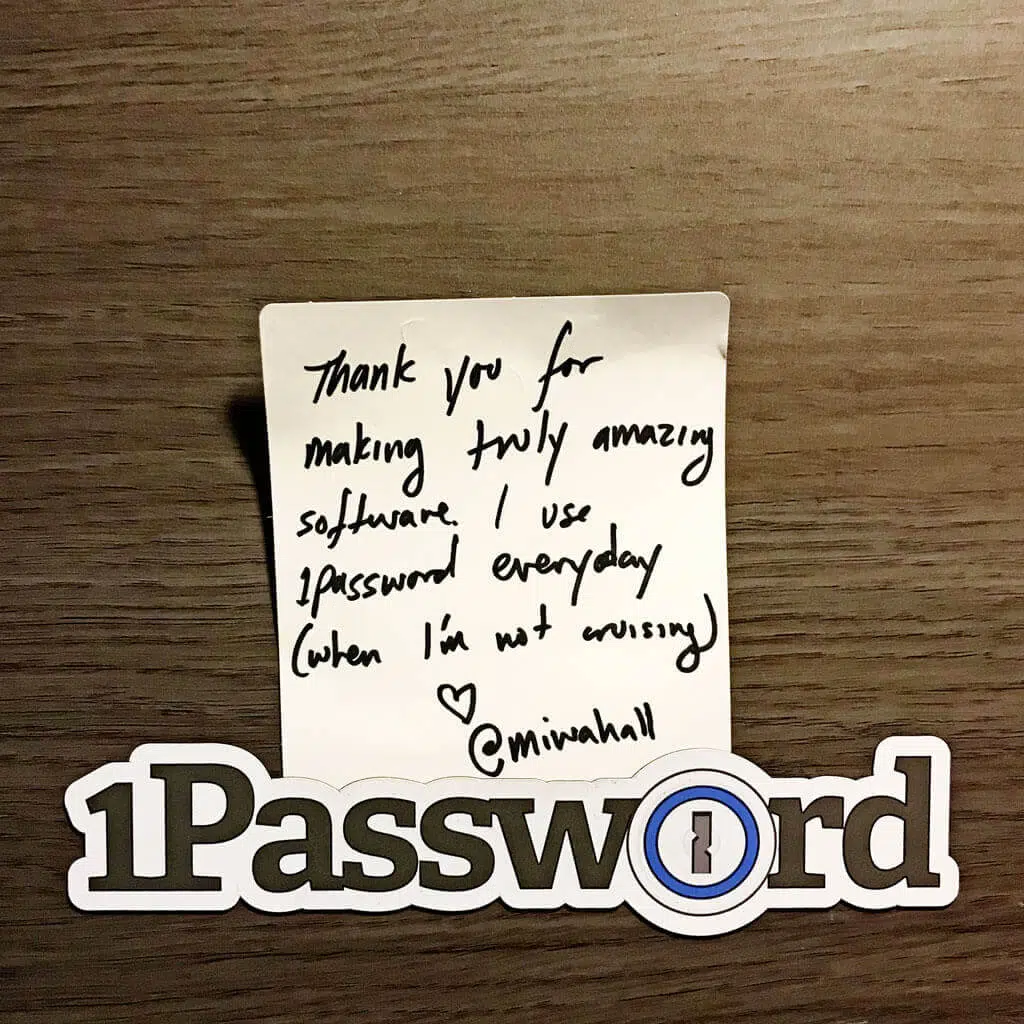 Thank you for
making truly amazing
software. I use
1Password everyday
(when I'm not cruising)
♡
@miwahall
1Password